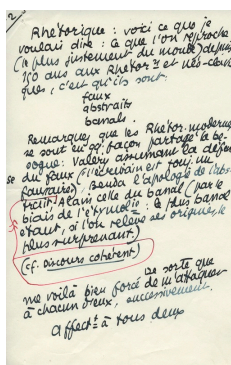 2
Rhétorique : voici ce que je
voulais dire : ce que l'on reproche
(le plus justement du monde) depuis
150 ans aux Rhétor
ques, c'est qu'ils sont
faux
abstraits
banals.
Remarques que les Rhétor. modernes
se sont en qq. façon partagé la be-
sogne : Valéry assumant la défen
se du faux (l'écrivain est touj. un
faussaire), Benda l'apologie de l'abs-
trait, Alain celle du banal (par le
biais de l'étymologie : le plus banal
étant, si l'on relève ses origines, le
plus surprenant.)
(cf. Discours cohérent)
De sorte que
me voilà bien forcé de m'attaquer
à chacun d'eux, successivement.
affectt à tous deux